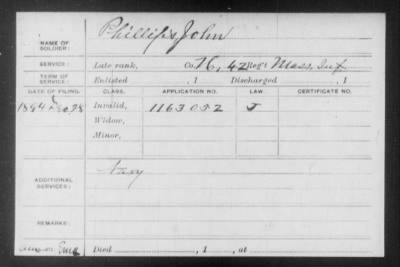 NAME OF SOLDIER: Phillips, John
SERVICE: Late rank, Co. K, 42 Reg't Mass. Inf
TERM OF SERVICE: Enlisted , 1 Discharged , 1
DATE OF FILING. CLASS. APPLICATION NO. LAW. CERTIFICATE NO.
1894 98 Invalid, 1163092 J
Widow,
Minor,
ADDITIONAL SERVICES: Navy
REMARKS:
Died , 1 , at